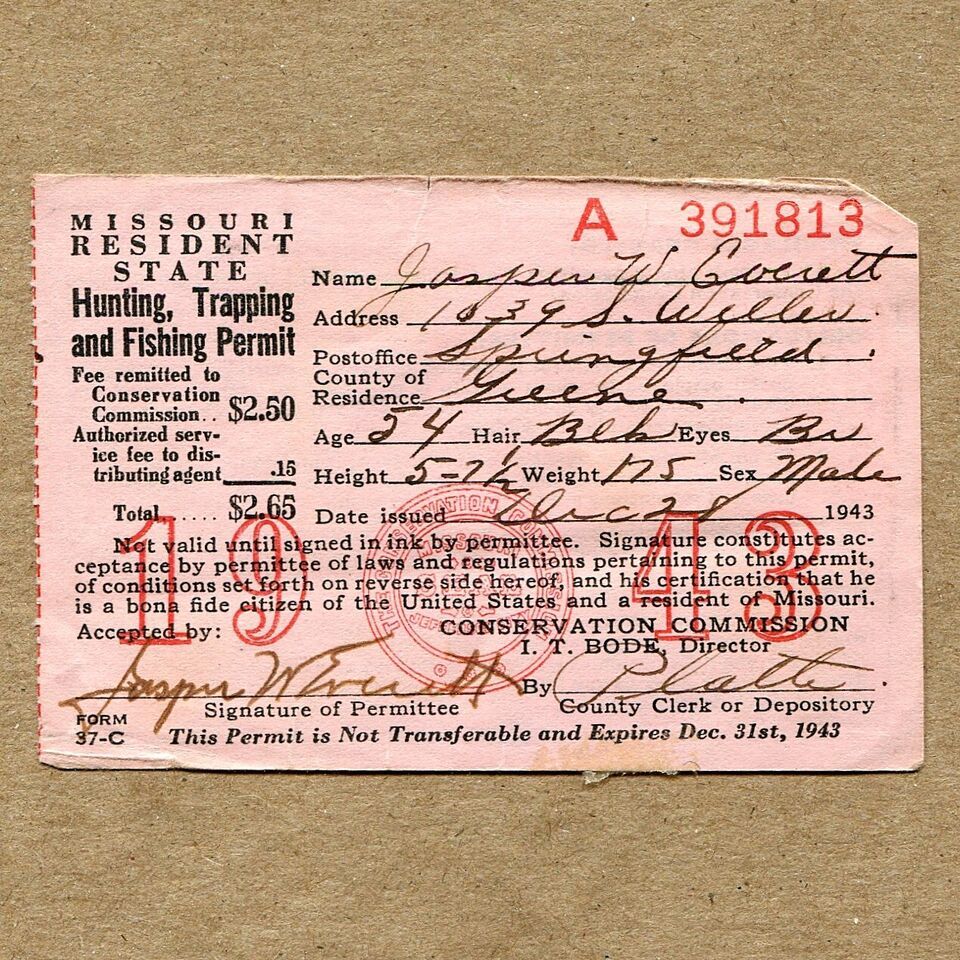 A 391813
MISSOURI
RESIDENT
STATE
Hunting, Trapping
and Fishing Permit
Fee remitted to
Conservation
Commission.. $2.50
Authorized serv-
ice fee to dis-
tributing agent .15
Total ..... $2.65
Name Jasper W Everett
Address 1039 S. Weller
Postoffice Springfield
County of
Residence Greene
Age 54 Hair Blk Eyes Br
Height 5-7½ Weight 175 Sex Male
Date issued Dec 28 1943
1943
Not valid until signed in ink by permittee. Signature constitutes ac-
ceptance by permittee of laws and regulations pertaining to this permit,
of conditions set forth on reverse side hereof, and his certification that he
is a bona fide citizen of the United States and a resident of Missouri.
Accepted by:
CONSERVATION COMMISSION
I. T. BODE, Director
Jasper W Everett
Signature of Permittee
By Platte
County Clerk or Depository
FORM
37-C
This Permit is Not Transferable and Expires Dec. 31st, 1943